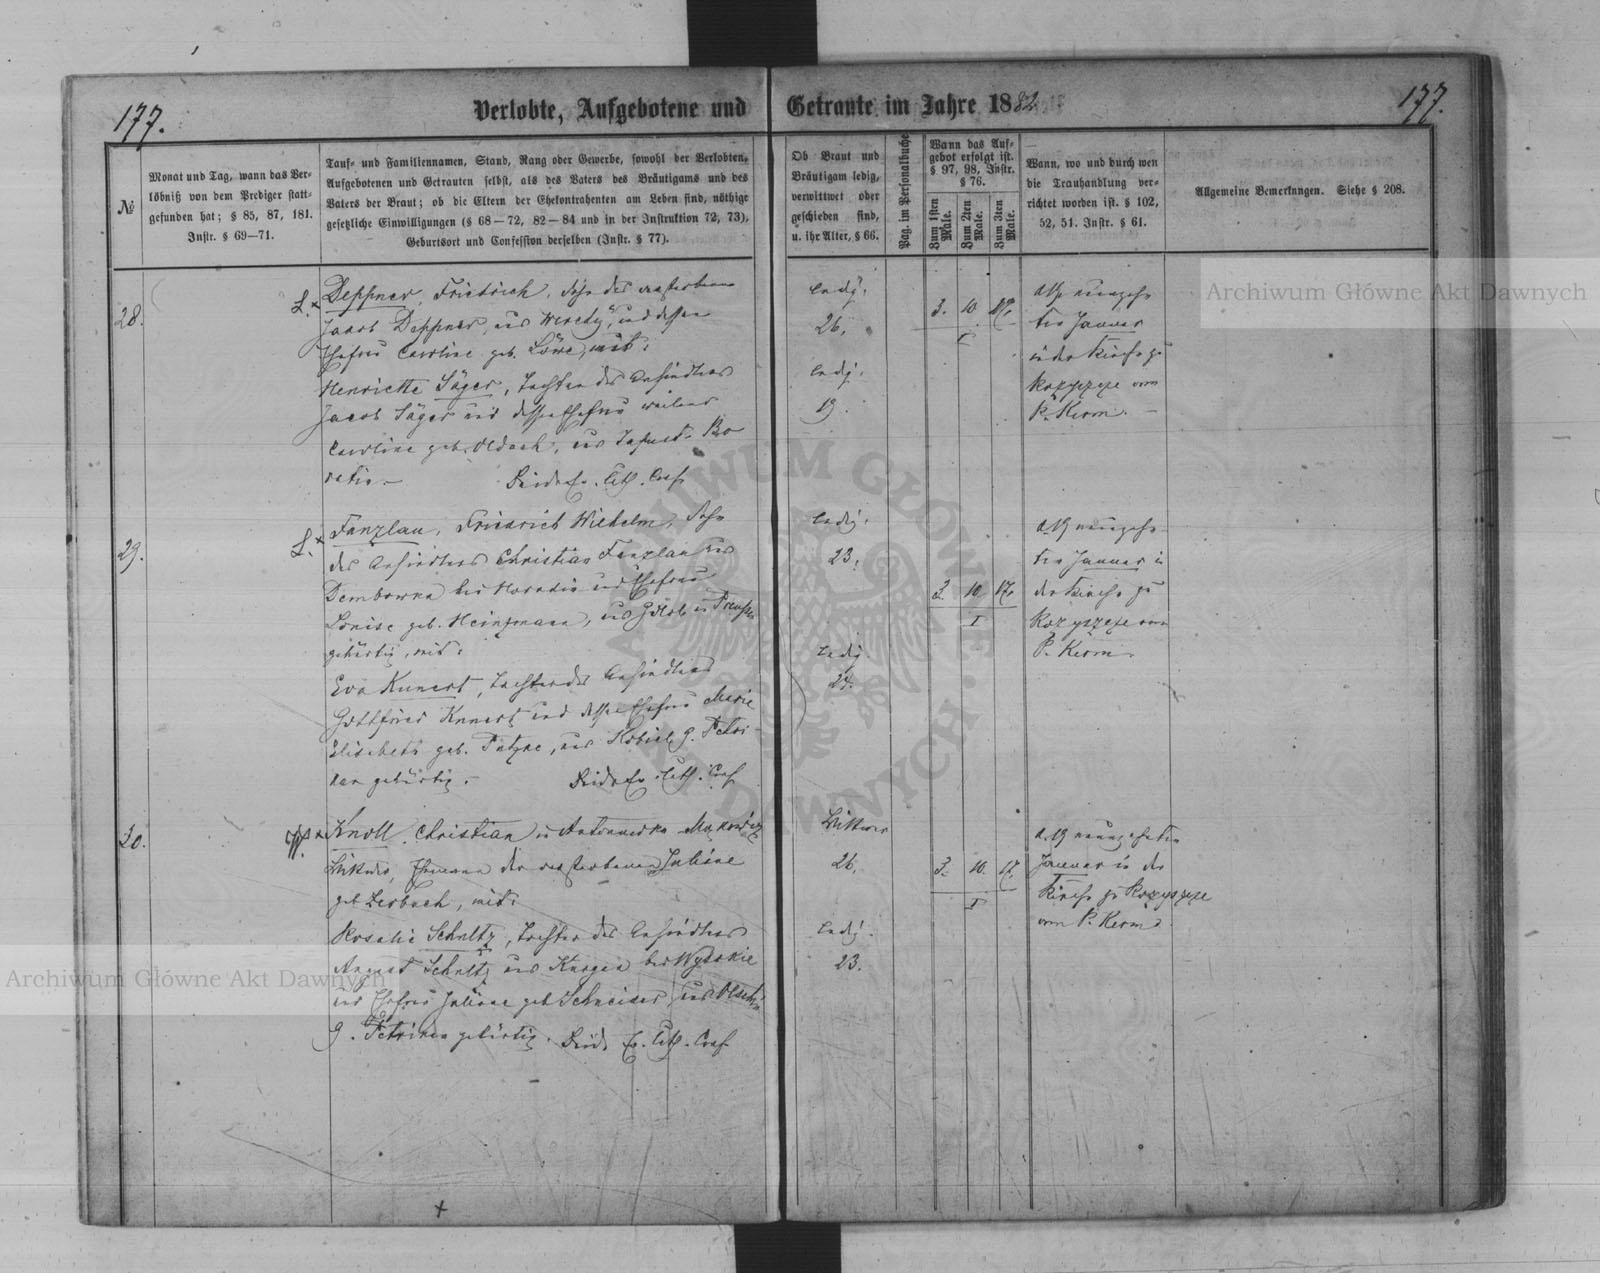 177.
Verlobte, Aufgebotene und
Getraute im Jahre 1882
177.
№
Monat und Tag, wann das Ver-
löbniß von dem Prediger statt-
gefunden hat; § 85, 87, 181.
Instr. § 69—71.
Tauf- und Familiennamen, Stand, Rang oder Gewerbe, sowohl der Verlobten,
Aufgebotenen und Getrauten selbst, als des Vaters des Bräutigams und des
Vaters der Braut; ob die Eltern der Ehekontrahenten am Leben sind, nöthige
gesetzliche Einwilligungen (§ 68—72, 82—84 und in der Instruktion 72, 73),
Geburtsort und Confession derselben (Instr. § 77).
Ob Braut und
Bräutigam ledig,
verwittwet oder
geschieden sind,
u. ihr Alter, § 66.
Pag. im Personalbuche
Wann das Auf-
gebot erfolgt ist.
§ 97, 98, Instr.
§ 76.
Zum 1sten Male.
Zum 2ten Male.
Zum 3ten Male.
Wann, wo und durch wen
die Trauhandlung ver-
richtet worden ist. § 102,
52, 51. Instr. § 61.
Allgemeine Bemerkungen. Siehe § 208.
28.
L. × Deppner, Friedrich, Sohn des verstorbenen
Jacob Deppner, und dessen
Ehefrau Caroline geb. Löwe, mit:
Henriette Jäger, Tochter des Ansiedlers
Jacob Jäger und dessen Ehefrau weiland
Caroline geb. Oldach, aus
Beide Ev. Luth. Conf.
ledig.
26.
ledig.
19.
3. 10. 17.
I
Am neunzehn-
ten Januar
in der Kirche zu
Rozyszcze vom
P. Kerm.
29.
L. × Fanzlau, Friedrich Wilhelm, Sohn
des Ansiedlers Christian Fanzlau aus
Dembowka bei und Ehefrau
Louise geb. Heinzmann, aus in Preußen
gebürtig, mit:
Eva Kunert, Tochter des Ansiedlers
Gottfried Kunert und dessen Ehefrau Marie
Elisabeth geb. aus g. Petri-
kau gebürtig.
Beide Ev. Luth. Conf.
ledig.
23.
ledig
24.
3. 10. 17.
I
Am neunzehn-
ten Januar in
der Kirche zu
Rozyszcze vom
P. Kerm.
30.
W. × Knoll, Christian in Antonowka
Wittwer, Ehemann der verstorbenen Juliane
geb. mit:
Rosalie Schultz, Tochter des Ansiedlers
August Schultz aus bei
und Ehefrau Juliane geb. Schneider, aus
g. Petrikau gebürtig. Beide Ev. Luth. Conf.
Wittwer
26.
ledig.
23.
3. 10. 17.
I
Am neunzehnten
Januar in der
Kirche zu Rozyszcze
vom P. Kerm.
Archiwum Główne Akt Dawnych
Archiwum Główne Akt Dawnych
ARCHIWUM GŁÓWNE AKT DAWNYCH